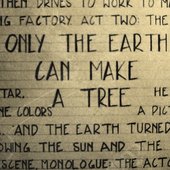 THEN DRIVES TO WORK TO
NG FACTORY ACT TWO: THE
ONLY THE EARTH
CAN MAKE
TAR. HE
A TREE
NE COLORS A
AND THE EARTH TURNED
OWING THE SUN AND THE
SCENE, MONOLOGUE: THE ACTO